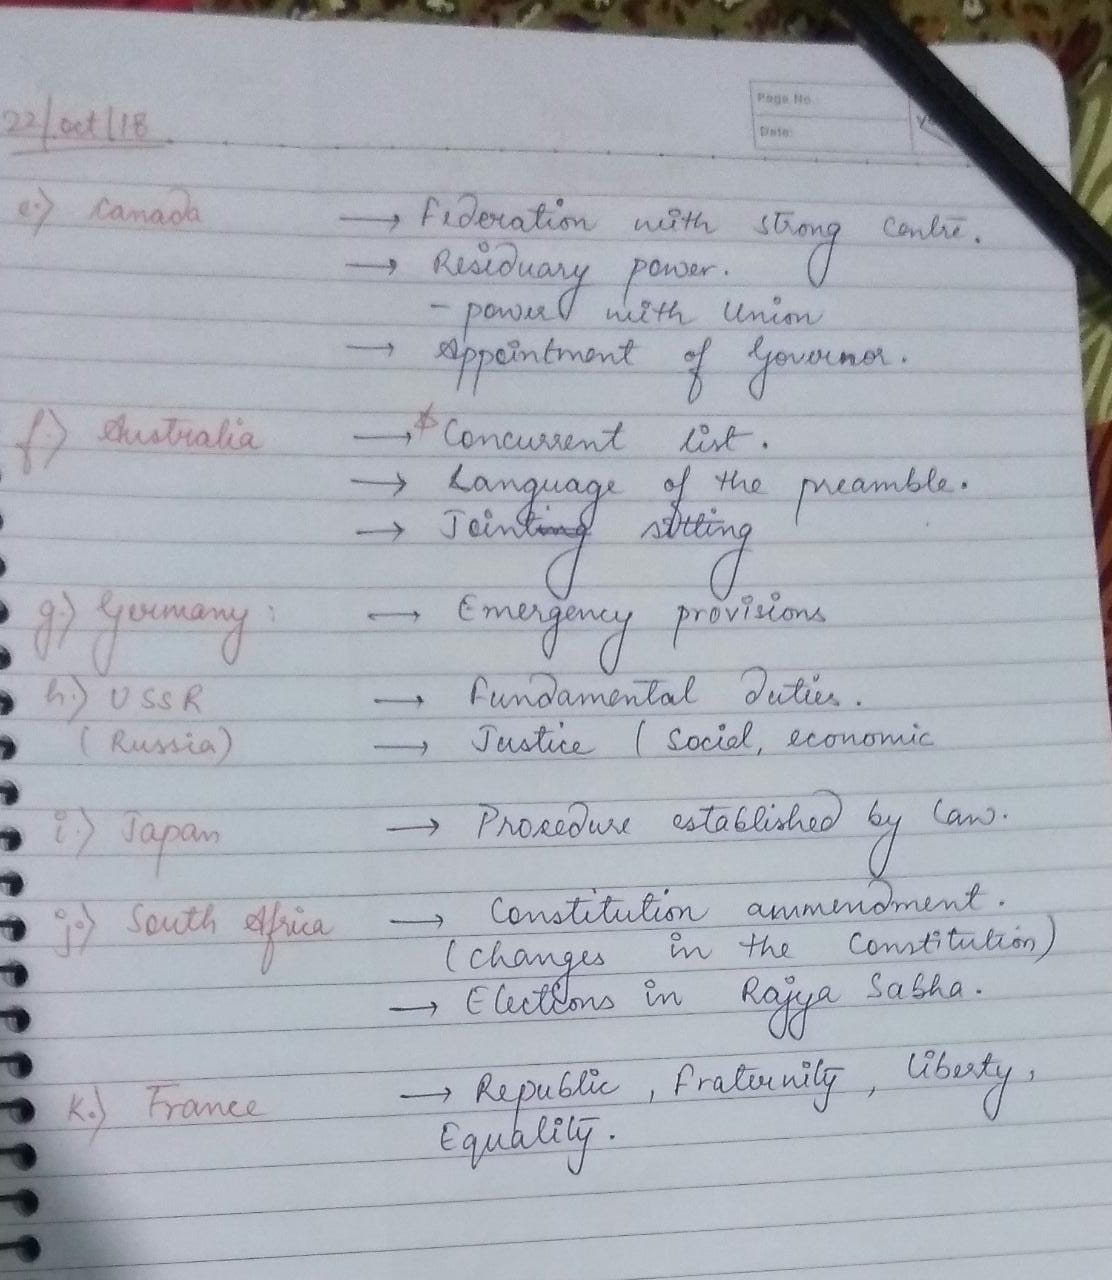 Page No
Date:
22/oct/18
e.) Canada → Federation with strong centre.
→ Residuary power.
- power with Union
→ Appointment of Governor.
f.) Australia → * Concurrent list.
→ Language of the preamble.
→ Jointing sitting
g.) Germany : → Emergency provisions
h.) USSR → Fundamental Duties.
(Russia) → Justice ( Social, economic
i.) Japan → Procedure established by law.
j.) South Africa → Constitution ammendment.
(changes in the constitution)
→ Elections in Rajya Sabha.
k.) France → Republic , fraternity , liberty,
Equality.